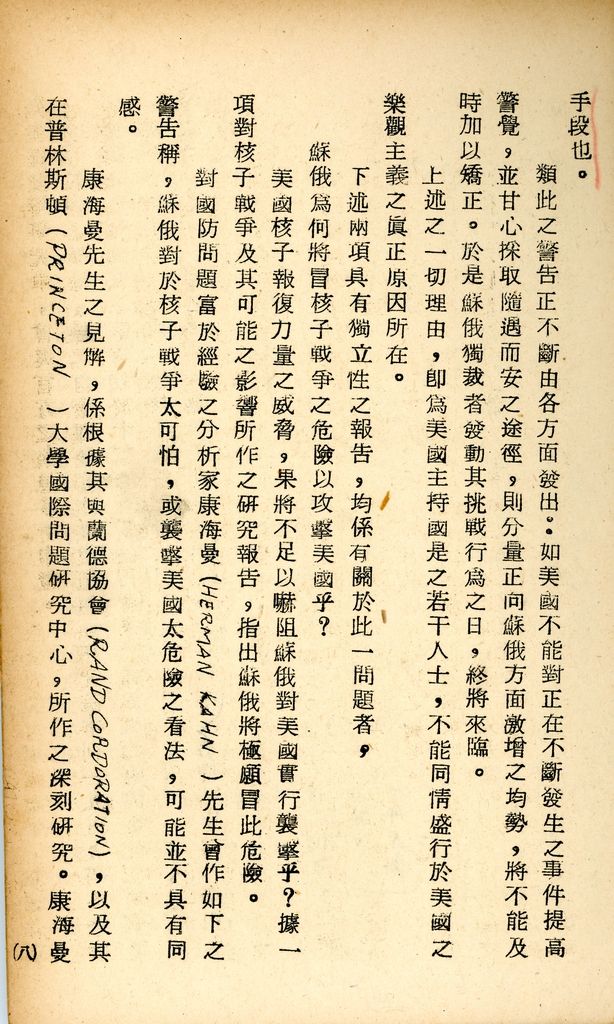 手段也。
類此之警告正不斷由各方面發出。如美國不能對正在不斷發生之事件提高
警覺，並甘心採取隨遇而安之途徑，則分量正向蘇俄方面激增之均勢，將不能及
時加以矯正。於是蘇俄獨裁者發動其挑戰行為之日，終將來臨。
上述之一切理由，卽為美國主持國是之若干人士，不能同情盛行於美國之
樂觀主義之眞正原因所在。
下述兩項具有獨立性之報告，均係有關於此一問題者，
蘇俄為何將冒核子戰爭之危險以攻擊美國乎？
美國核子報復力量之威脅，果將不足以嚇阻蘇俄對美國實行襲擊乎？據一
項對核子戰爭及其可能之影響所作之研究報告，指出蘇俄將極願冒此危險。
對國防問題富於經驗之分析家康海曼（HERMAN KAHN）先生曾作如下之
警告稱，蘇俄對於核子戰爭太可怕，或襲擊美國太危險之看法，可能並不具有同
感。
康海曼先生之見解，係根據其與蘭德協會（RAND CORDORATION），以及其
在普林斯頓（PRINCETON）大學國際問題研究中心，所作之深刻研究。康海曼
（八）